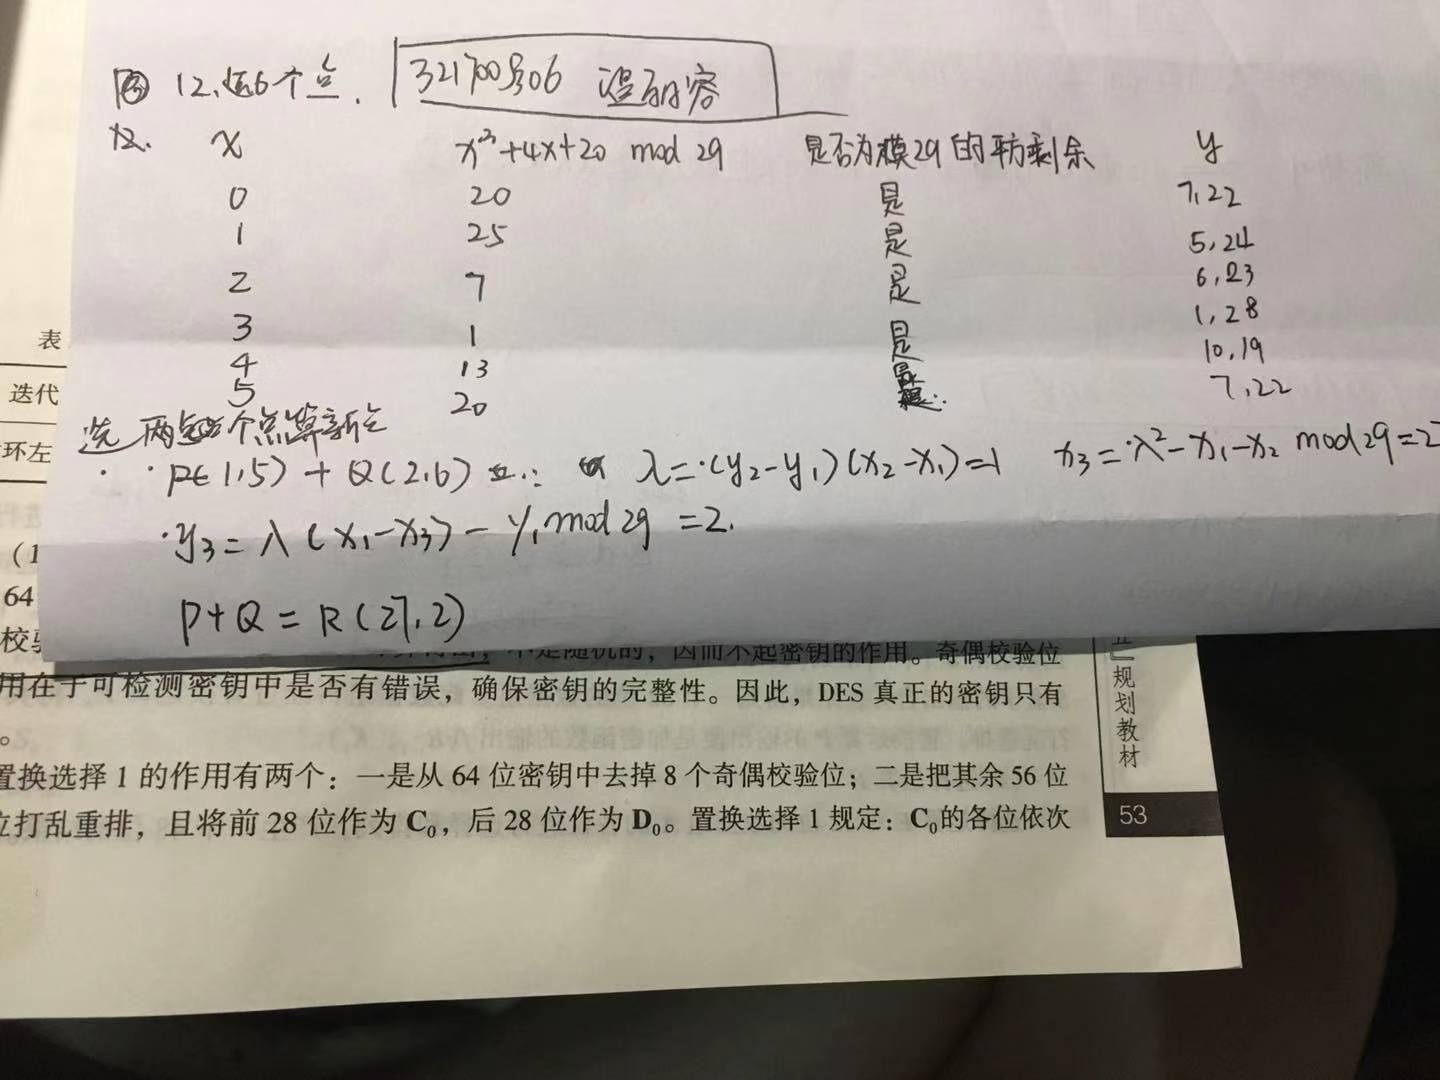 12.选6个点. 321700306
12. x x³+4x+20 mod 29 是否为模29的平方剩余 y
0 20 是 7,22
1 25 是 5,24
2 7 是 6,23
3 1 是 1,28
4 13 是 10,19
5 20 是 7,22
选两个点算新点
P(1,5) + Q(2,6) λ=(y₂-y₁)(x₂-x₁)=1 x₃=λ²-x₁-x₂ mod 29=27
y₃=λ(x₁-x₃)-y₁ mod 29 =2.
P+Q = R(27,2)
表
迭代
环左
(1
64
校验
不是随机的,因而不起密钥的作用。奇偶校验位
用在于可检测密钥中是否有错误,确保密钥的完整性。因此,DES 真正的密钥只有
。
置换选择 1 的作用有两个:一是从 64 位密钥中去掉 8 个奇偶校验位;二是把其余 56 位
位打乱重排,且将前 28 位作为 C₀,后 28 位作为 D₀。置换选择 1 规定:C₀的各位依次
五』规划教材
53